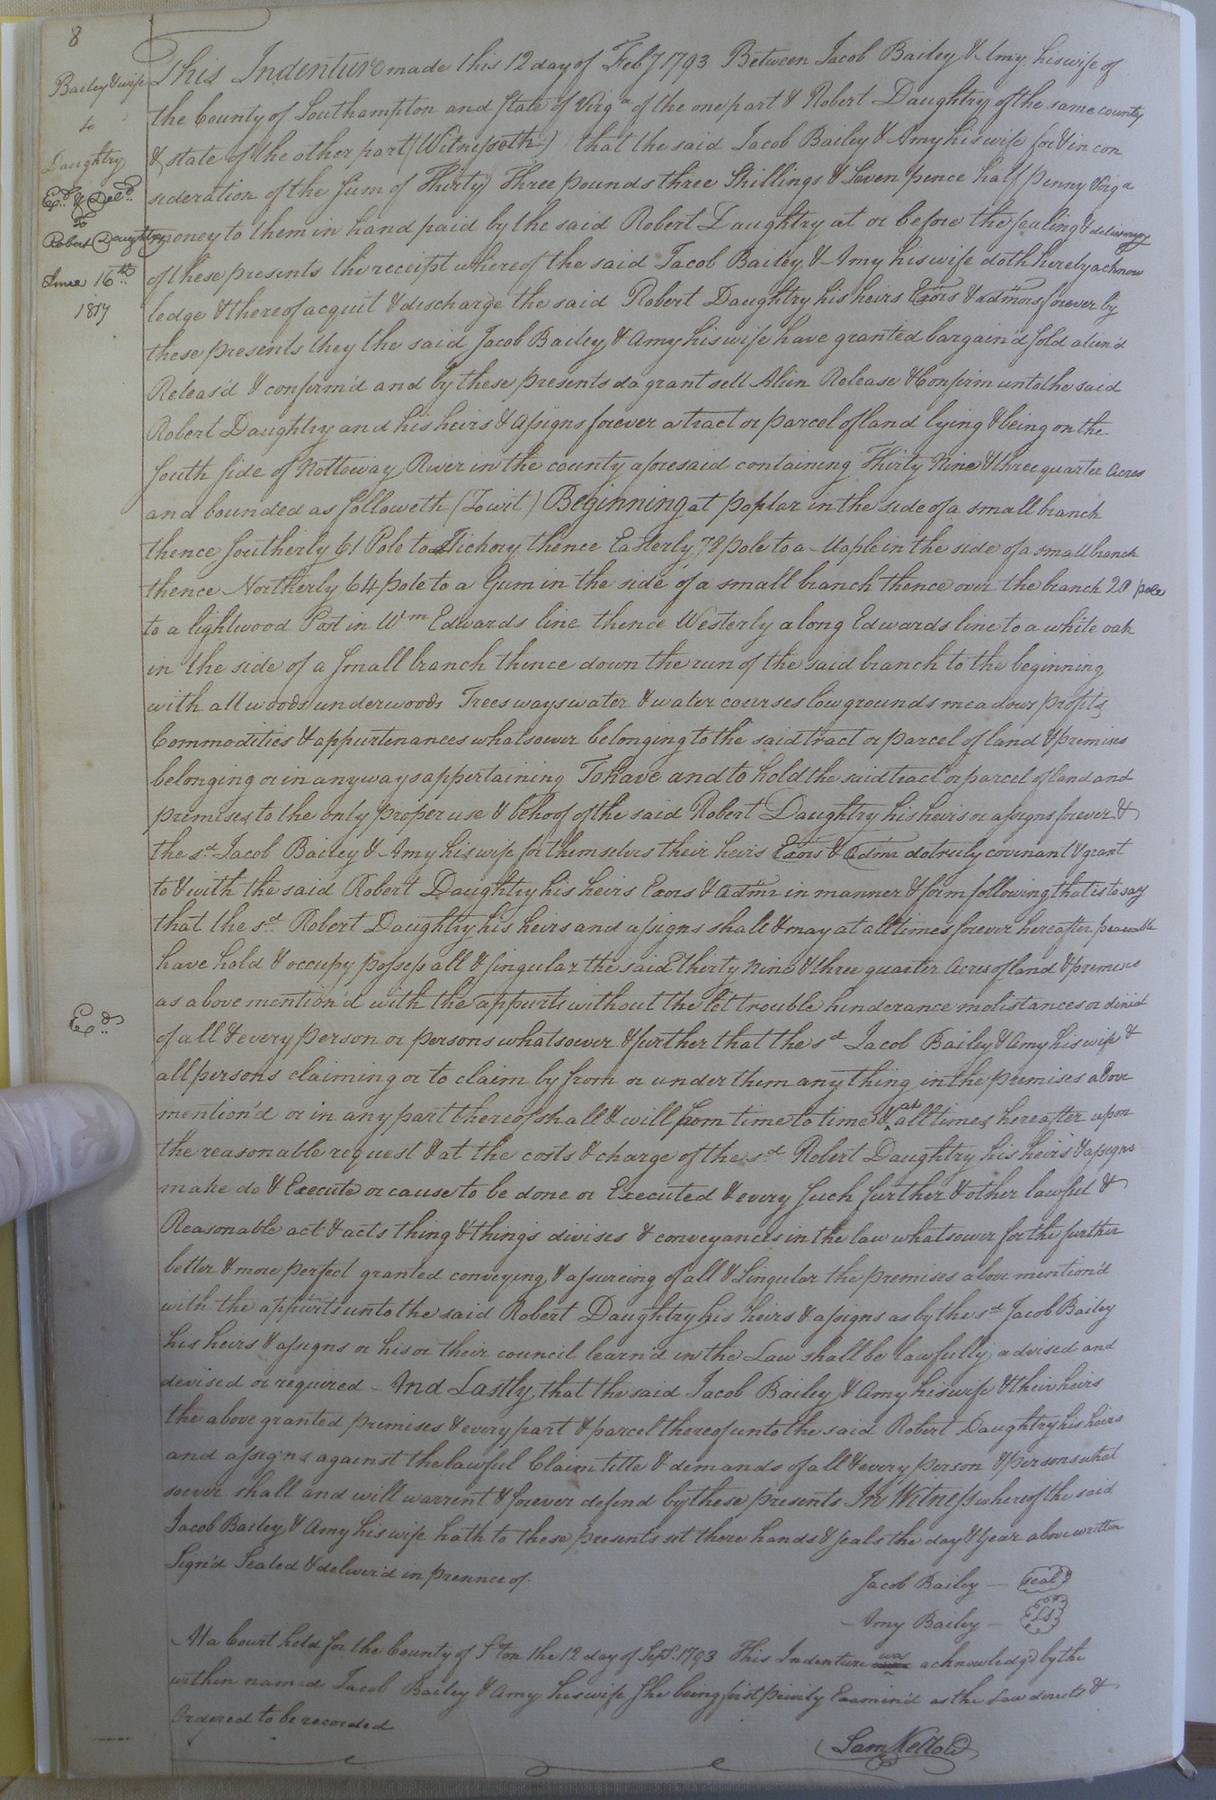 8
Bailey & wife
to
Daughtry
Ex.d & Del.d
To
Robert Daughtry
June 16th
1817
This Indenture made this 12 day of Feby 1793 Between Jacob Bailey & Amy his wife of
the County of Southampton and State of Virga of the one part & Robert Daughtry of the same county
& state of the other part (Witnesseth) that the said Jacob Bailey & Amy his wife for & in con
sideration of the Sum of Thirty Three pounds three Shillings & Seven pence half penny Virga
money to them in hand paid by the said Robert Daughtry at or before the sealing & delivery
of these presents the receipt whereof the said Jacob Bailey & Amy his wife doth hereby acknow
ledge & thereof acquit & discharge the said Robert Daughtry his heirs Exors & admors forever by
these presents they the said Jacob Bailey & Amy his wife have granted bargain'd sold alien'd
Releas'd & confirm'd and by these presents do grant sell Alien Release & Confirm unto the said
Robert Daughtry and his heirs & assigns forever a tract or parcel of land lying & being on the
South side of Nottoway River in the county aforesaid containing Thirty Nine & three quarter Acres
and bounded as followeth (Towit) Beginning at poplar in the side of a small branch
thence Southerly 61 Pole to a Hickory thence Easterly 78 pole to a Maple in the side of a small branch
thence Northerly 64 pole to a Gum in the side of a small branch thence over the branch 20 pole
to a lightwood Post in Wm Edwards line thence Westerly along Edwards line to a white oak
in the side of a small branch thence down the run of the said branch to the beginning
with all woods underwoods Trees ways water & water courses low grounds meadows profits
Commodities & appurtenances whatsoever belonging to the said tract or parcel of land & premises
belonging or in any ways appertaining To have and to hold the said tract or parcel of land and
premises to the only proper use & behoof of the said Robert Daughtry his heirs or assigns forever &
the sd Jacob Bailey & Amy his wife for themselves their heirs Exors & Admr do truly covenant & grant
to & with the said Robert Daughtry his heirs Exors & Admr in manner & form following that is to say
that the sd Robert Daughtry his heirs and assigns shall & may at all times forever hereafter peaceable
have hold & occupy possess all & singular the said thirty nine & three quarter Acres of land & premises
Ex.d
as above mention'd with the appurts without the let trouble hinderance molistances or
of all & every person or persons whatsoever & further that the sd Jacob Bailey & Amy his wife &
all persons claiming or to claim by from or under them any thing in the premises above
mention'd or in any part thereof shall & will from time to time & at all times hereafter upon
the reasonable request & at the costs & charge of the sd Robert Daughtry his heirs & assigns
make do & Execute or cause to be done or Executed & every such further & other lawful &
Reasonable act & acts thing & things divises & conveyances in the law whatsoever for the further
better & more perfect granted conveying & assureing of all & Singular the premises above mention'd
with the appurts unto the said Robert Daughtry his heirs & assigns as by the sd Jacob Bailey
his heirs & assigns or his or their council learn'd in the Law shall be lawfully advised and
devised or required And Lastly that the said Jacob Bailey & Amy his wife & their heirs
the above granted premises & every part & parcel thereof unto the said Robert Daughtry his heirs
and assigns against the lawful Claim title & demands of all & every person & persons what
soever shall and will warrent & forever defend by these presents In Witness whereof the said
Jacob Bailey & Amy his wife hath to these presents set there hands & seals the day & year above written
Sign'd Sealed & deliver'd in presence of.
Jacob Bailey — seal
Amy Bailey — LS
At a Court held for the County of S'ton the 12 day of Sept. 1793 This Indenture was acknowledg'd by the
within named Jacob Bailey & Amy his wife She being first privily Examin'd as the Law directs &
Ordered to be recorded
Sam Kello